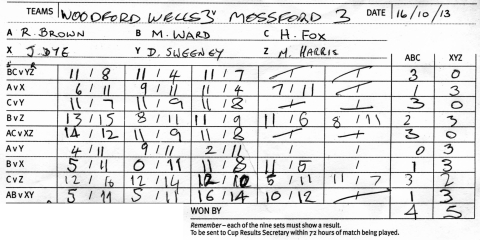 TEAMS WOODFORD WELLS 3 v MOSSFORD 3 DATE 16/10/13
A R. BROWN B M. WARD C H. FOX
X J. DYE Y D. SWEENEY Z M. HARRIS
ABC XYZ
BC v YZ 11 / 8 11 / 4 11 / 7 / / 3 0
A v X 6 / 11 9 / 11 11 / 4 7 / 11 / 1 3
C v Y 11 / 7 11 / 9 11 / 8 / / 3 0
B v Z 13 / 15 8 / 11 11 / 9 11 / 6 8 / 11 2 3
AC v XZ 14 / 12 11 / 9 11 / 8 / / 3 0
A v Y 4 / 11 9 / 11 2 / 11 / / 0 3
B v X 5 / 11 0 / 11 11 / 8 11 / 5 / 1 3
C v Z 12 / 10 12 / 14 12 / 10 5 / 11 11 / 7 3 2
AB v XY 5 / 11 5 / 11 16 / 14 10 / 12 / 1 3
WON BY 4 5
Remember – each of the nine sets must show a result.
To be sent to Cup Results Secretary within 72 hours of match being played.